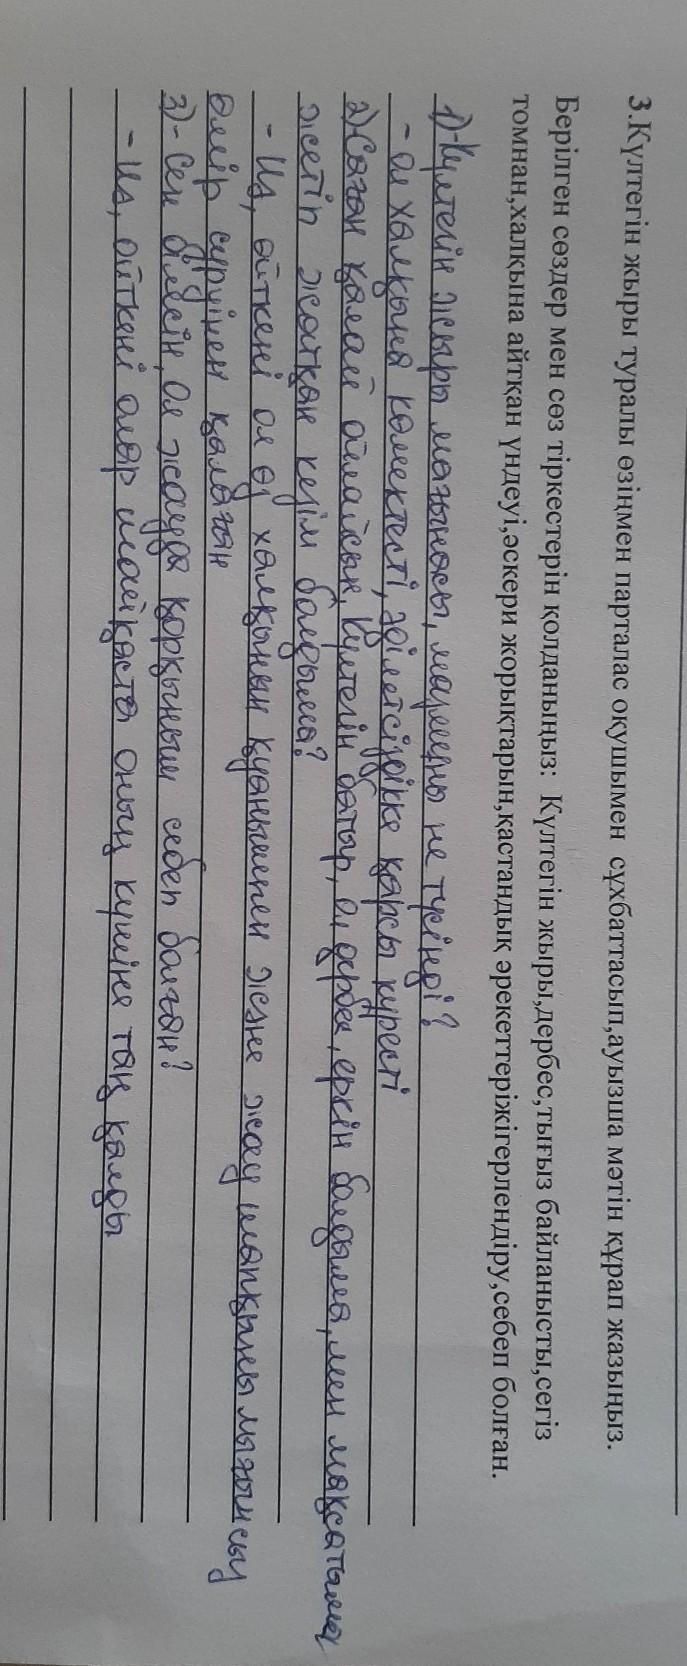 3.Күлтегін жыры туралы өзіңмен парталас оқушымен сұхбаттасып,ауызша мәтін құрап жазыңыз.
Берілген сөздер мен сөз тіркестерін қолданыңыз: Күлтегін жыры,дербес,тығыз байланысты,сегіз
томнан,халқына айтқан үндеуі,әскери жорықтарын,қастандық әрекеттеріжігерлендіру,себеп болған.
1)-Күлтегін жыры мағынасы, маңызы не түсінді?
- ол халқына көмектесті, әділетсіздікке қарсы күресті
2)Соған қалай ойлайсың, Күлтегін батыр, ол дербес, еркін болдыма, мен мақсатына
жетіп жатқан кезім болдыма?
- Ия, өйткені ол өз халқынын қуанышпен және жау шапқыны
өмір сүруінен қалаған
3)- Сен білесін, ол жауда қорқыныш себеп болған?
- Ия, өйткені олар шайқаста оның күшіне таң қалды